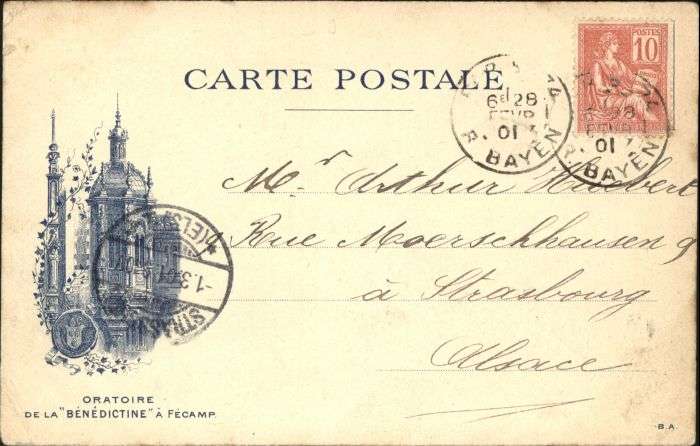 CARTE POSTALE
POSTES
10
PARIS
6E 28
FEVR
01
R. BAYEN
6E 28
FEVR
01
R. BAYEN
Mr Arthur Huebert
Rue Moerschhausen 9
à Strasbourg
Alsace
STRASS
1.3.01
ORATOIRE
DE LA "BÉNÉDICTINE" À FÉCAMP
B.A.